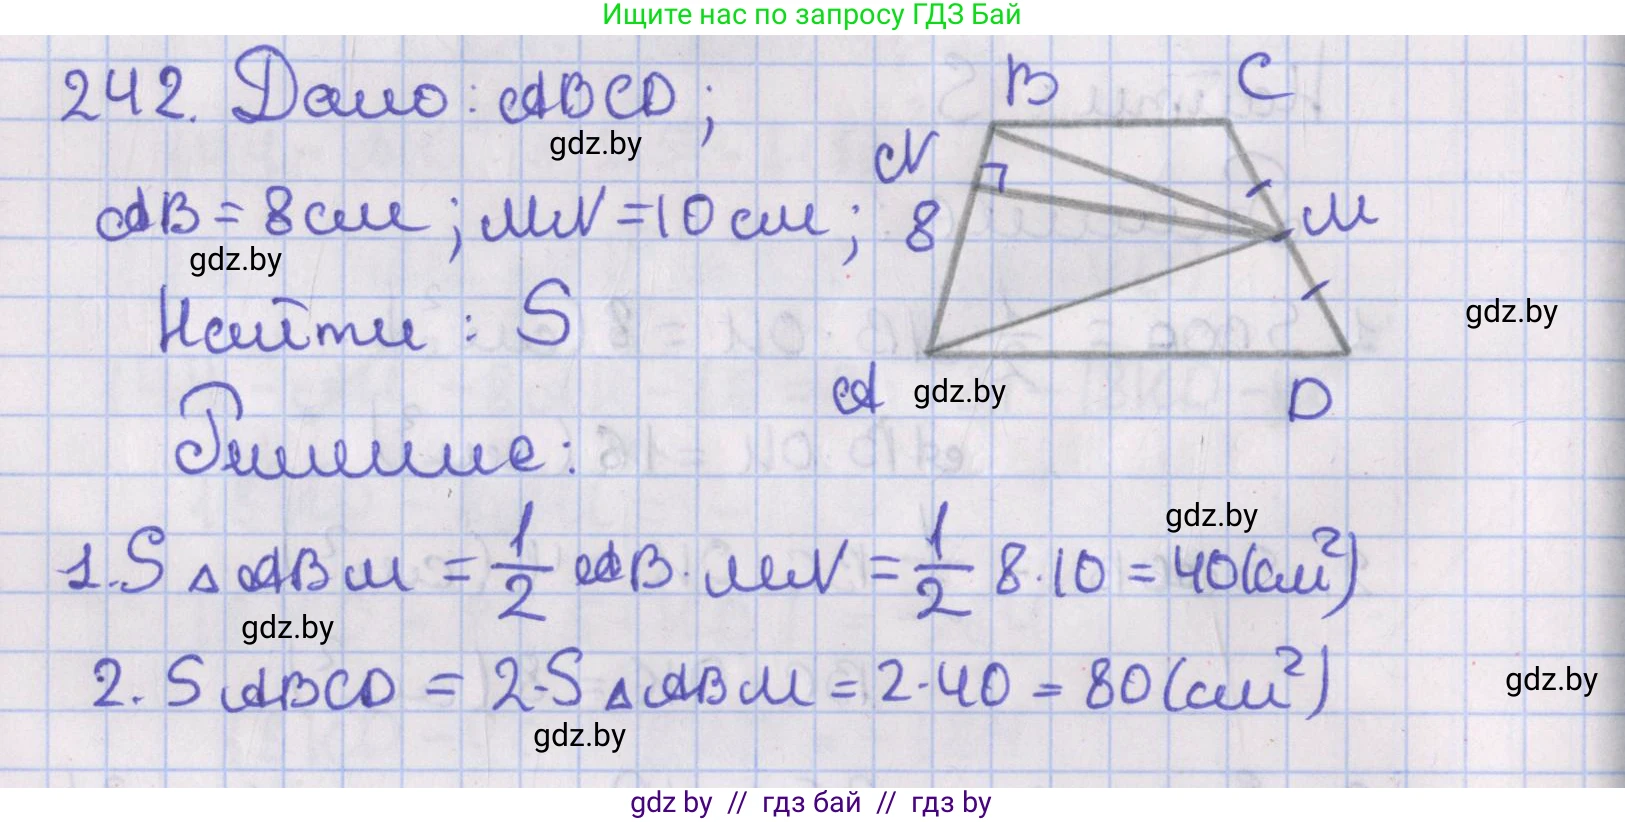 Ищите нас по запросу ГДЗ Бай
242. Дано: ABCD;
gdz.by
AB = 8 см; MN = 10 см;
gdz.by
Найти: S
B C
N
8
M
gdz.by
A
gdz.by
D
Решение:
gdz.by
1. S △ ABM = 1/2 AB · MN = 1/2 8 · 10 = 40 (см²)
gdz.by
2. S ABCD = 2 · S △ ABM = 2 · 40 = 80 (см²)
gdz.by
gdz.by
gdz by // гдз бай // гдз by